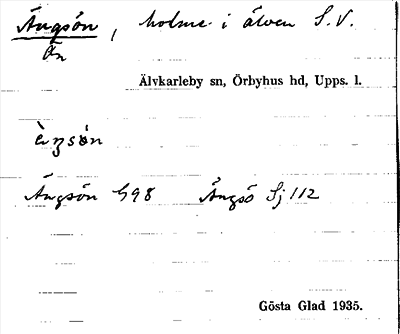 Ängsön, holme i älven S.V.
Än
Älvkarleby sn, Örbyhus hd, Upps. l.
Ängsön G98 Ängsö Sj 112
Gösta Glad 1935.